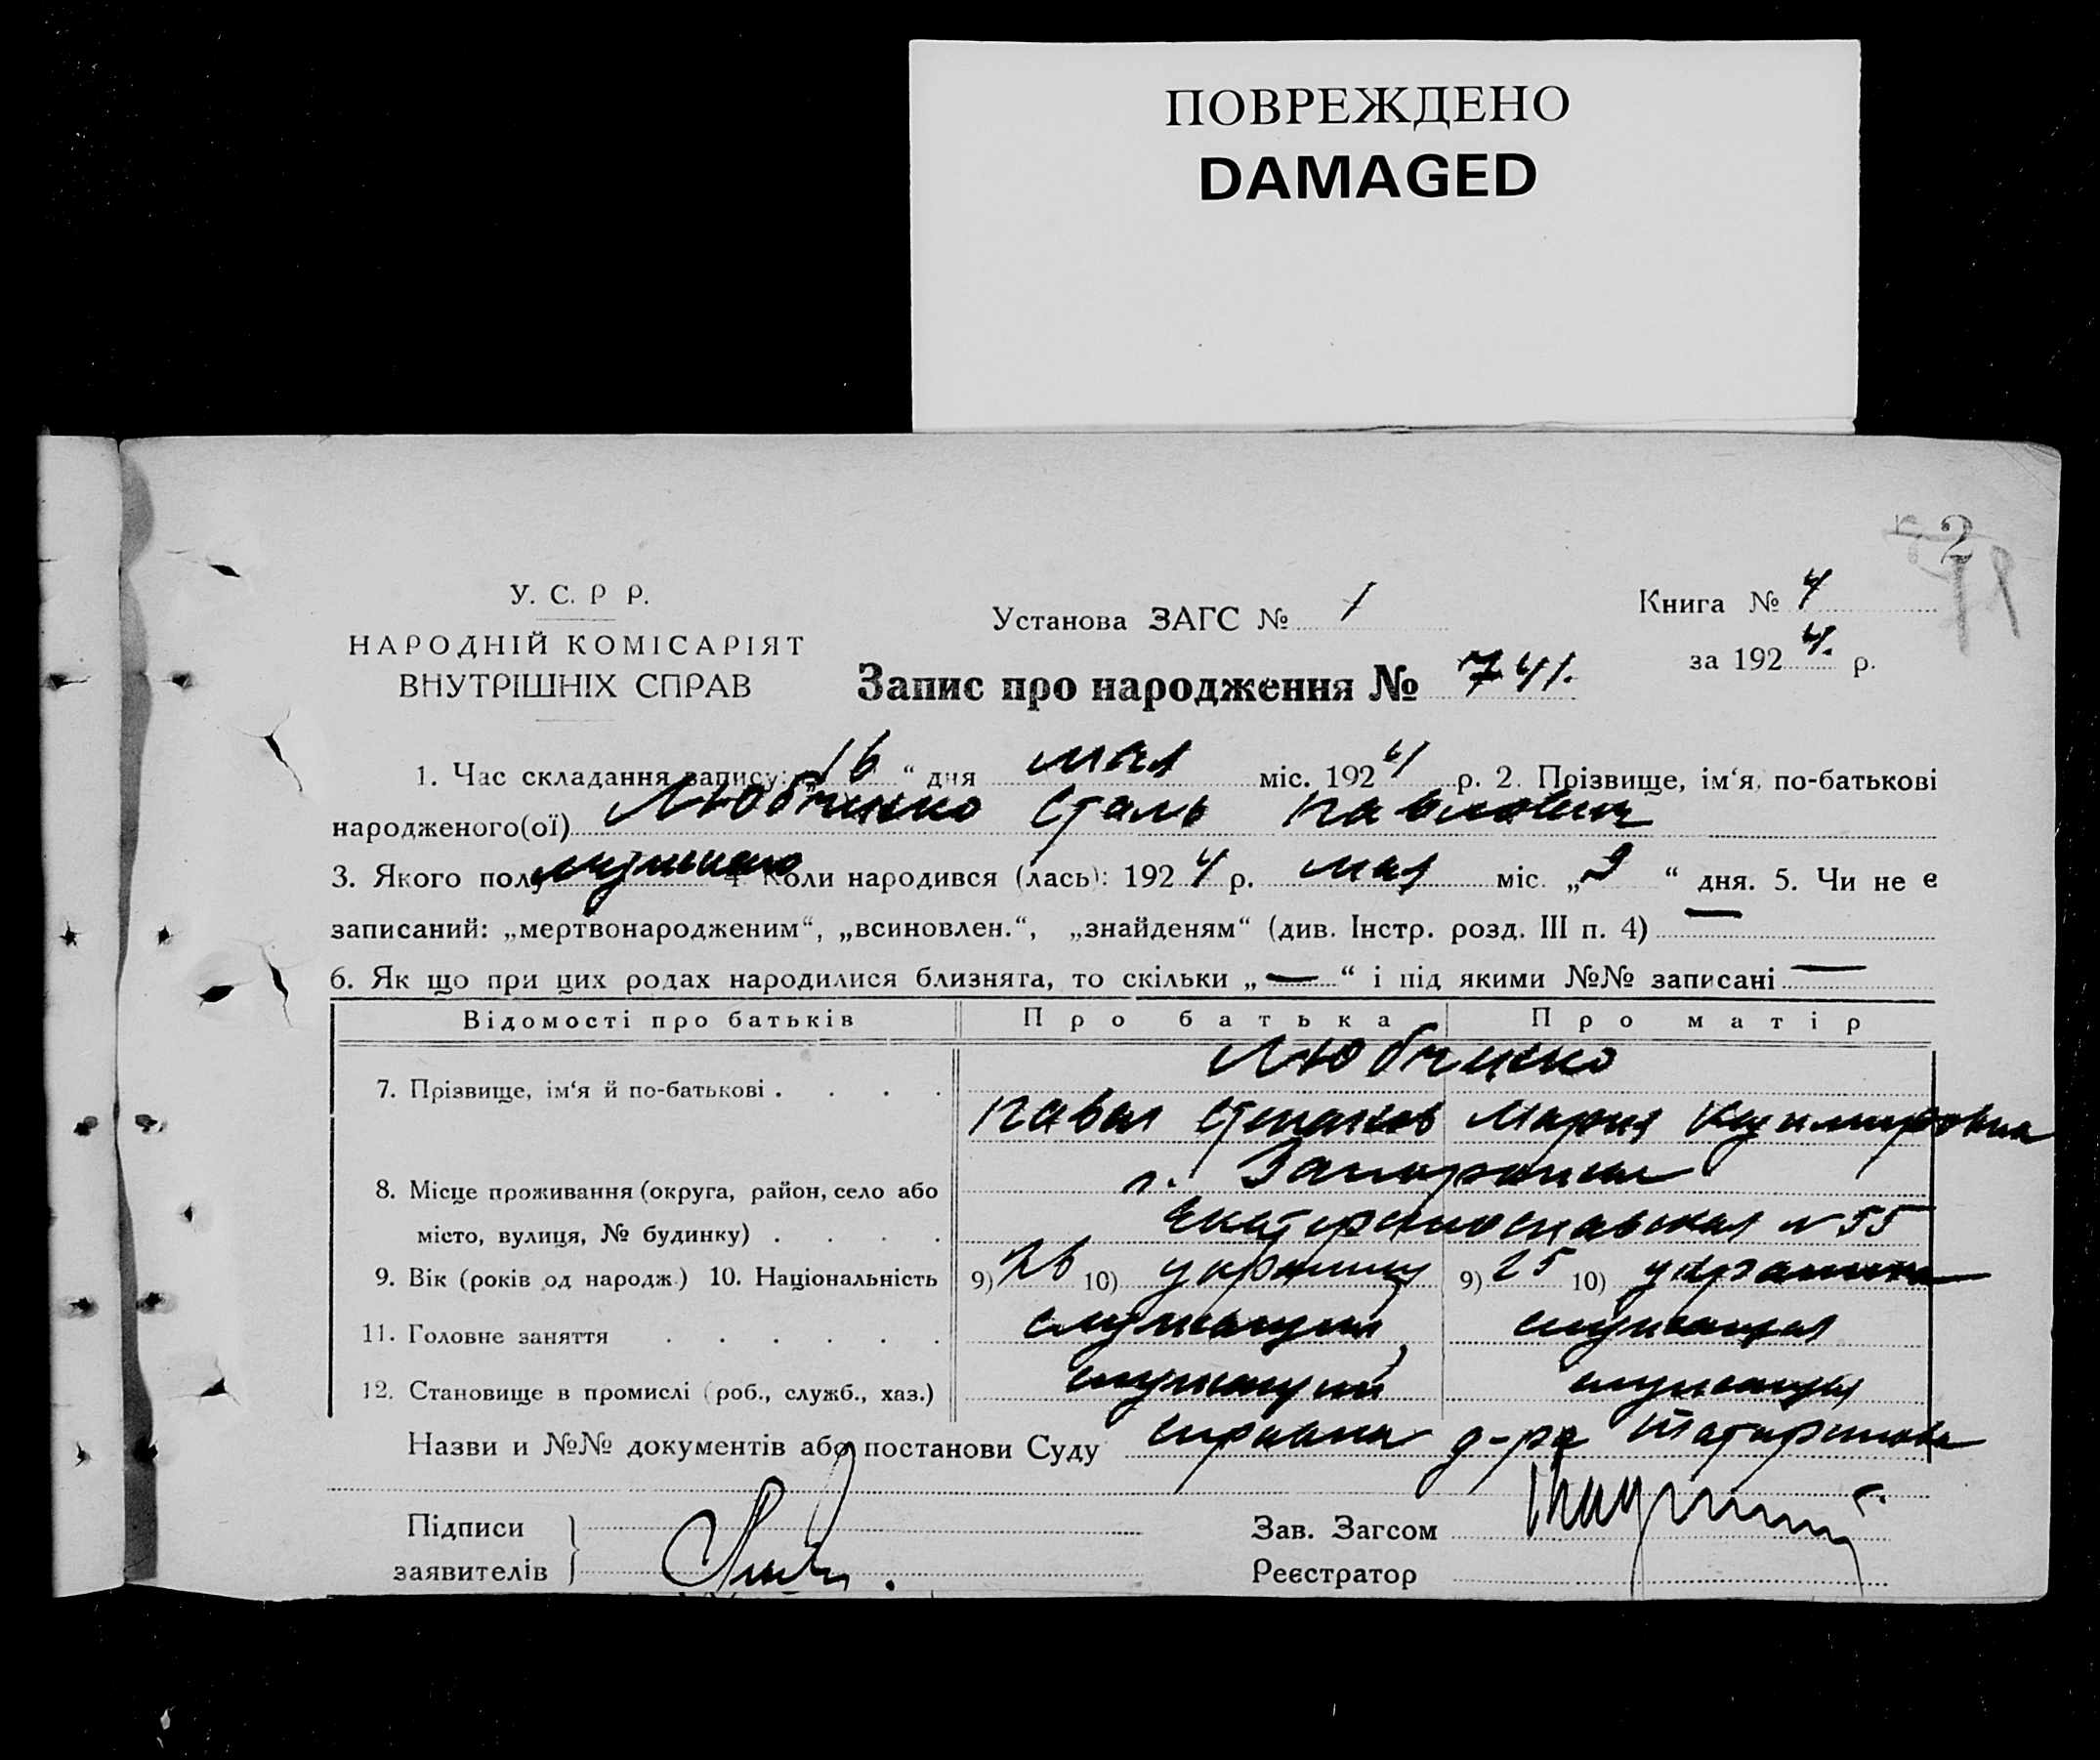 ПОВРЕЖДЕНО
DAMAGED
2
У. С. Р Р.
НАРОДНІЙ КОМІСАРІЯТ
ВНУТРІШНІХ СПРАВ
Установа ЗАГС № 1
Книга № 4
за 1924. р.
Запис про народження № 741.
1. Час складання запису: „16“ дня мая міс. 1924 р. 2. Прізвище, ім‘я, по-батькові
народженого(ої) Любченко Сталь Павлович
3. Якого полу мужского 4. Коли народився (лась): 1924 р. мая міс. „9“ дня. 5. Чи не є
записаний: „мертвонародженим“, „всиновлен.“, „знайденям“ (див. Інстр. розд. III п. 4) —
6. Як що при цих родах народилися близнята, то скільки „—“ і під якими №№ записані —
Відомості про батьків Про батька Про матір
7. Прізвище, ім‘я й по-батькові . . . . Любченко
Павел Степанов Мария Казимировна
8. Місце проживання (округа, район, село або г. Запорожье
місто, вулиця, № будинку) . . . . Екатеринославская № 55
9. Вік (років од народж.) 10. Національність 9) 26 10) украинец 9) 25 10) украинка
11. Головне заняття . . . . . . служащий служащая
12. Становище в промислі (роб., служб., хаз.) служащий служащая
Назви и №№ документів або постанови Суду справка д-ра Татаринова
Підписи
заявителів
Зав. Загсом
Реєстратор